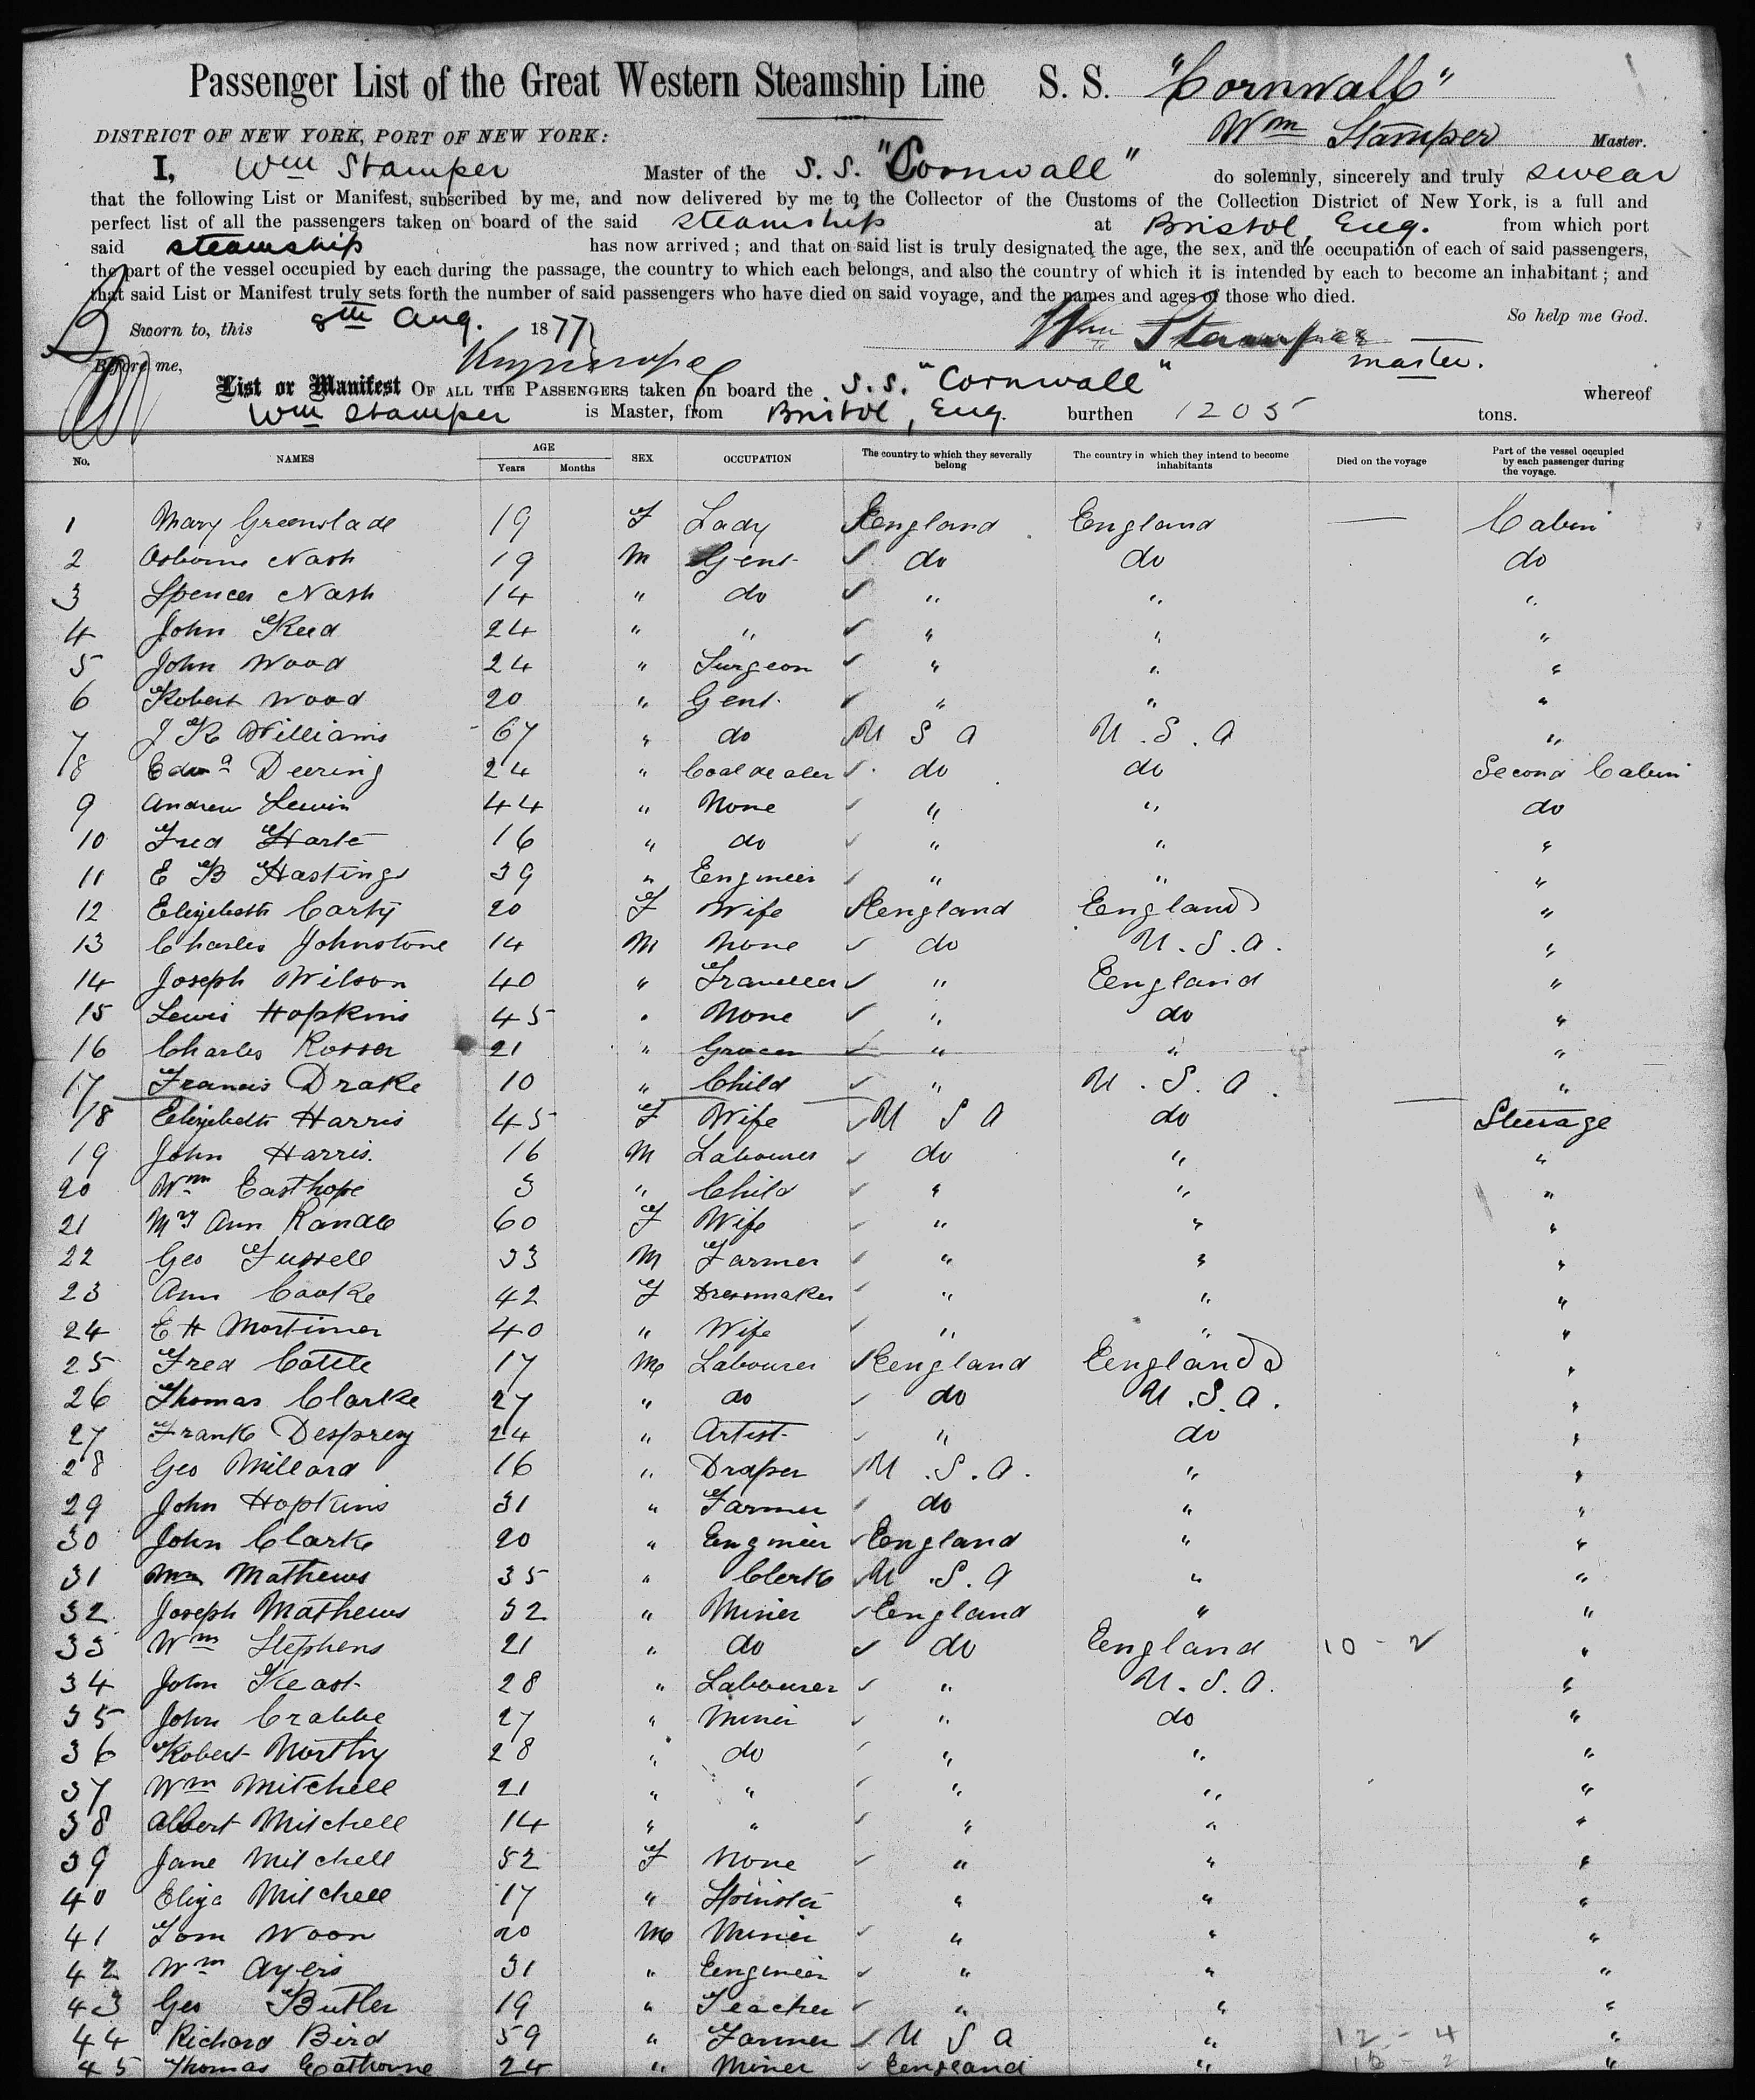 Passenger List of the Great Western Steamship Line S. S. "Cornwall"
DISTRICT OF NEW YORK, PORT OF NEW YORK: Wm Stamper Master.
I, Wm Stamper Master of the S. S. "Cornwall" do solemnly, sincerely and truly swear
that the following List or Manifest, subscribed by me, and now delivered by me to the Collector of the Customs of the Collection District of New York, is a full and
perfect list of all the passengers taken on board of the said steamship at Bristol, Eng. from which port
said steamship has now arrived; and that on said list is truly designated the age, the sex, and the occupation of each of said passengers,
the part of the vessel occupied by each during the passage, the country to which each belongs, and also the country of which it is intended by each to become an inhabitant; and
that said List or Manifest truly sets forth the number of said passengers who have died on said voyage, and the names and ages of those who died.
Sworn to, this 8th Aug. 1877 So help me God.
Wm Stamper
Before me, master.
List or Manifest OF ALL THE PASSENGERS taken on board the S. S. "Cornwall" whereof
Wm Stamper is Master, from Bristol, Eng. burthen 1205 tons.
No. NAMES AGE Years Months SEX OCCUPATION The country to which they severally belong The country in which they intend to become inhabitants Died on the voyage Part of the vessel occupied by each passenger during the voyage.
1 Mary Greenslade 19 F Lady England England — Cabin
2 Osborne Nash 19 M Gent ✓ do do do
3 Spencer Nash 14 " do ✓ " " "
4 John Reed 24 " " ✓ " " "
5 John Wood 24 " Surgeon ✓ " " "
6 Robert Wood 20 " Gent. ✓ " " "
7 J R Williams 67 " do ✓ U S A U. S. A "
8 Edwd Deering 24 " Coal dealer ✓ do do Second Cabin
9 Andrew Lewin 44 " None ✓ " " do
10 Fred Harte 16 " do ✓ " " "
11 E B Hastings 39 " Engineer ✓ " " "
12 Elizabeth Carty 20 F Wife ✓ England England "
13 Charles Johnstone 14 M None ✓ do U. S. A. "
14 Joseph Wilson 40 " Traveller ✓ " England "
15 Lewis Hopkins 45 " None ✓ " do "
16 Charles Rosser 21 " Grocer ✓ " " "
17 Francis Drake 10 " Child ✓ " U. S. A. "
18 Elizabeth Harris 45 F Wife ✓ U S A do — Steerage
19 John Harris. 16 M Labourer ✓ do " "
20 Wm Easthope 3 " Child ✓ " " "
21 My Ann Randle 60 F Wife ✓ " " "
22 Geo Fussell 33 M Farmer ✓ " " "
23 Ann Cooke 42 F Dressmaker ✓ " " "
24 E H Mortimer 40 " Wife ✓ " " "
25 Fred Cottle 17 M Labourer ✓ England England "
26 Thomas Clarke 27 " do ✓ do U. S. A. "
27 Frank Desprey 24 " Artist ✓ " do "
28 Geo Millard 16 " Draper ✓ U. S. A. " "
29 John Hopkins 31 " Farmer ✓ do " "
30 John Clarke 20 " Engineer ✓ England " "
31 Mathews 35 " Clerk ✓ U. S. A " "
32 Joseph Mathews 32 " Miner ✓ England " "
33 Wm Stephens 21 " do ✓ do England 10 - "
34 John Keast 28 " Labourer ✓ " U. S. A. "
35 John Crabbe 27 " Miner ✓ " do "
36 Robert Northy 28 " do ✓ " " "
37 Wm Mitchell 21 " " ✓ " " "
38 Albert Mitchell 14 " " ✓ " " "
39 Jane Mitchell 52 F None ✓ " " "
40 Eliza Mitchell 17 " Spinster " " "
41 Tom Woon 20 M Miner ✓ " " "
42 Wm Ayers 31 " Engineer ✓ " " "
43 Geo Butler 19 " Teacher ✓ " " "
44 Richard Bird 59 " Farmer ✓ U S A " 12 - 4 "
45 Thomas 24 " Miner ✓ England " "